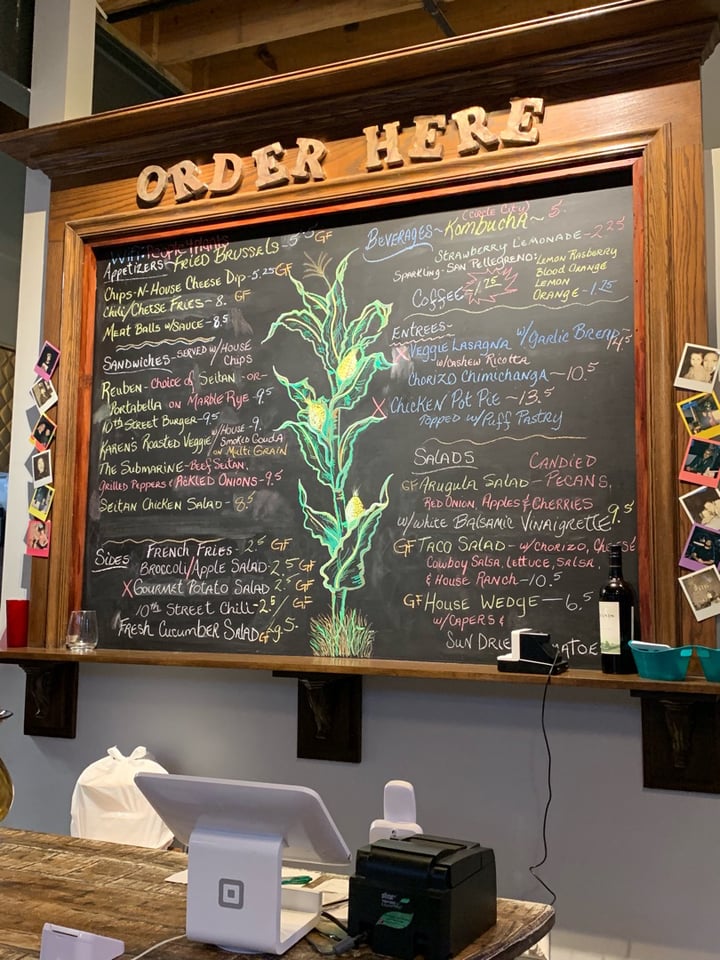 ORDER HERE
WiFi-
Appetizers- Fried Brussels-5 GF
Chips-N-House Cheese Dip-5.25 GF
Chili/Cheese Fries-8. GF
Meat Balls w/Sauce-8.5
Sandwiches-Served w/House
Chips
Reuben-Choice of Seitan -or-
Portabella on Marble Rye-9.5
10th Street Burger-9.5
Karen's Roasted Veggie w/House-9.
Smoked Gouda
on Multi Grain
The Submarine-Beef Seitan,
Grilled Peppers & Pickled Onions-9.5
Seitan Chicken Salad-8.5
Sides French Fries-2.5 GF
Broccoli/Apple Salad-2.5 GF
X Gourmet Potato Salad 2.5 GF
10th Street Chili-2.5/GF
Fresh Cucumber Salad GF
Beverages~ (Circle City)
Kombucha~5.
Strawberry Lemonade-2.25
Sparkling-San Pellegreno:
Lemon Rasberry
Blood Orange
Lemon
Orange-1.75
Coffee-1.75
Entrees~
X Veggie Lasagna w/Garlic Bread
w/Cashew Ricotta
Chorizo Chimichanga~10.5
X Chicken Pot Pie~13.5
Topped w/Puff Pastry
Salads
GF Arugula Salad-Candied Pecans,
Red Onion, Apples & Cherries
w/White Balsamic Vinaigrette 9.5
GF Taco Salad-w/Chorizo, Cheese
Cowboy Salsa, Lettuce, Salsa,
& House Ranch-10.5
GF House Wedge-6.5
w/Capers &
Sun